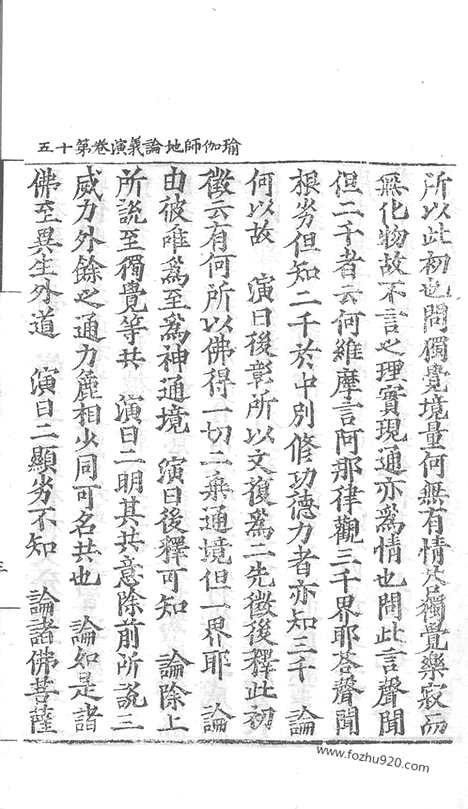 瑜伽師地論義演卷第十五
所以此初也問獨覺境量何無有情答獨覺樂寂而
無化物故不言之理實現通亦為情也問此言聲聞
但二千者云何維摩言阿那律觀三千界耶答聲聞
根劣但知二千於中別修功德力者亦知三千　論
何以故　演曰後彰所以文復為二先徵後釋此初
徵云有何所以佛得一切二乘通境但一界耶　論
由彼唯為至為神通境　演曰後釋可知　論除上
所說至獨覺等共　演曰二明其共意除前所說三
威力外餘之通力麁相少同可名共也　論如是諸
佛至異生外道　演曰二顯劣不知　論諸佛菩薩
www.fozhu920.com